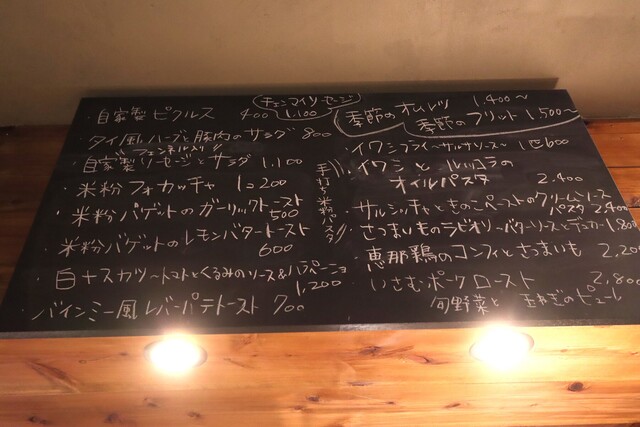 ・自家製ピクルス 400
チェンマイソーセージ 1,100
タイ風ハーブと豚肉のサラダ 800
・自家製ソーセージとサラダ 1,100
・米粉フォカッチャ 1コ 200
・米粉バゲットのガーリックトースト
500
・米粉バゲットのレモンバタートースト
600
・白ナスカツ トマトとくるみのソース&
1,200
・バインミー風レバーパテトースト 700
手打ち米粉パスタ
季節のオムレツ 1,400〜
季節のフリット 1,500〜
・イワシフライ 〜サルサソース〜 1匹600
・イワシとルッコラの
オイルパスタ 2,400
・サルシッチャときのこペーストのクリームソース
パスタ 2,400
・さつまいものラビオリ〜バターソースと 1,800
・恵那鶏のコンフィとさつまいも 2,200
・いさむポークロースト 2,800
旬野菜と玉ねぎのピューレ